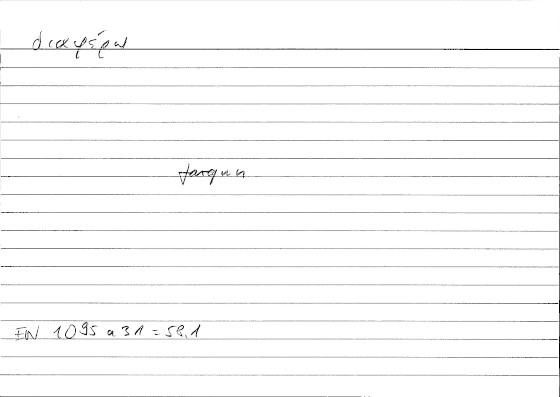 διαφέρω
EN 1095 a 31 = 58,1